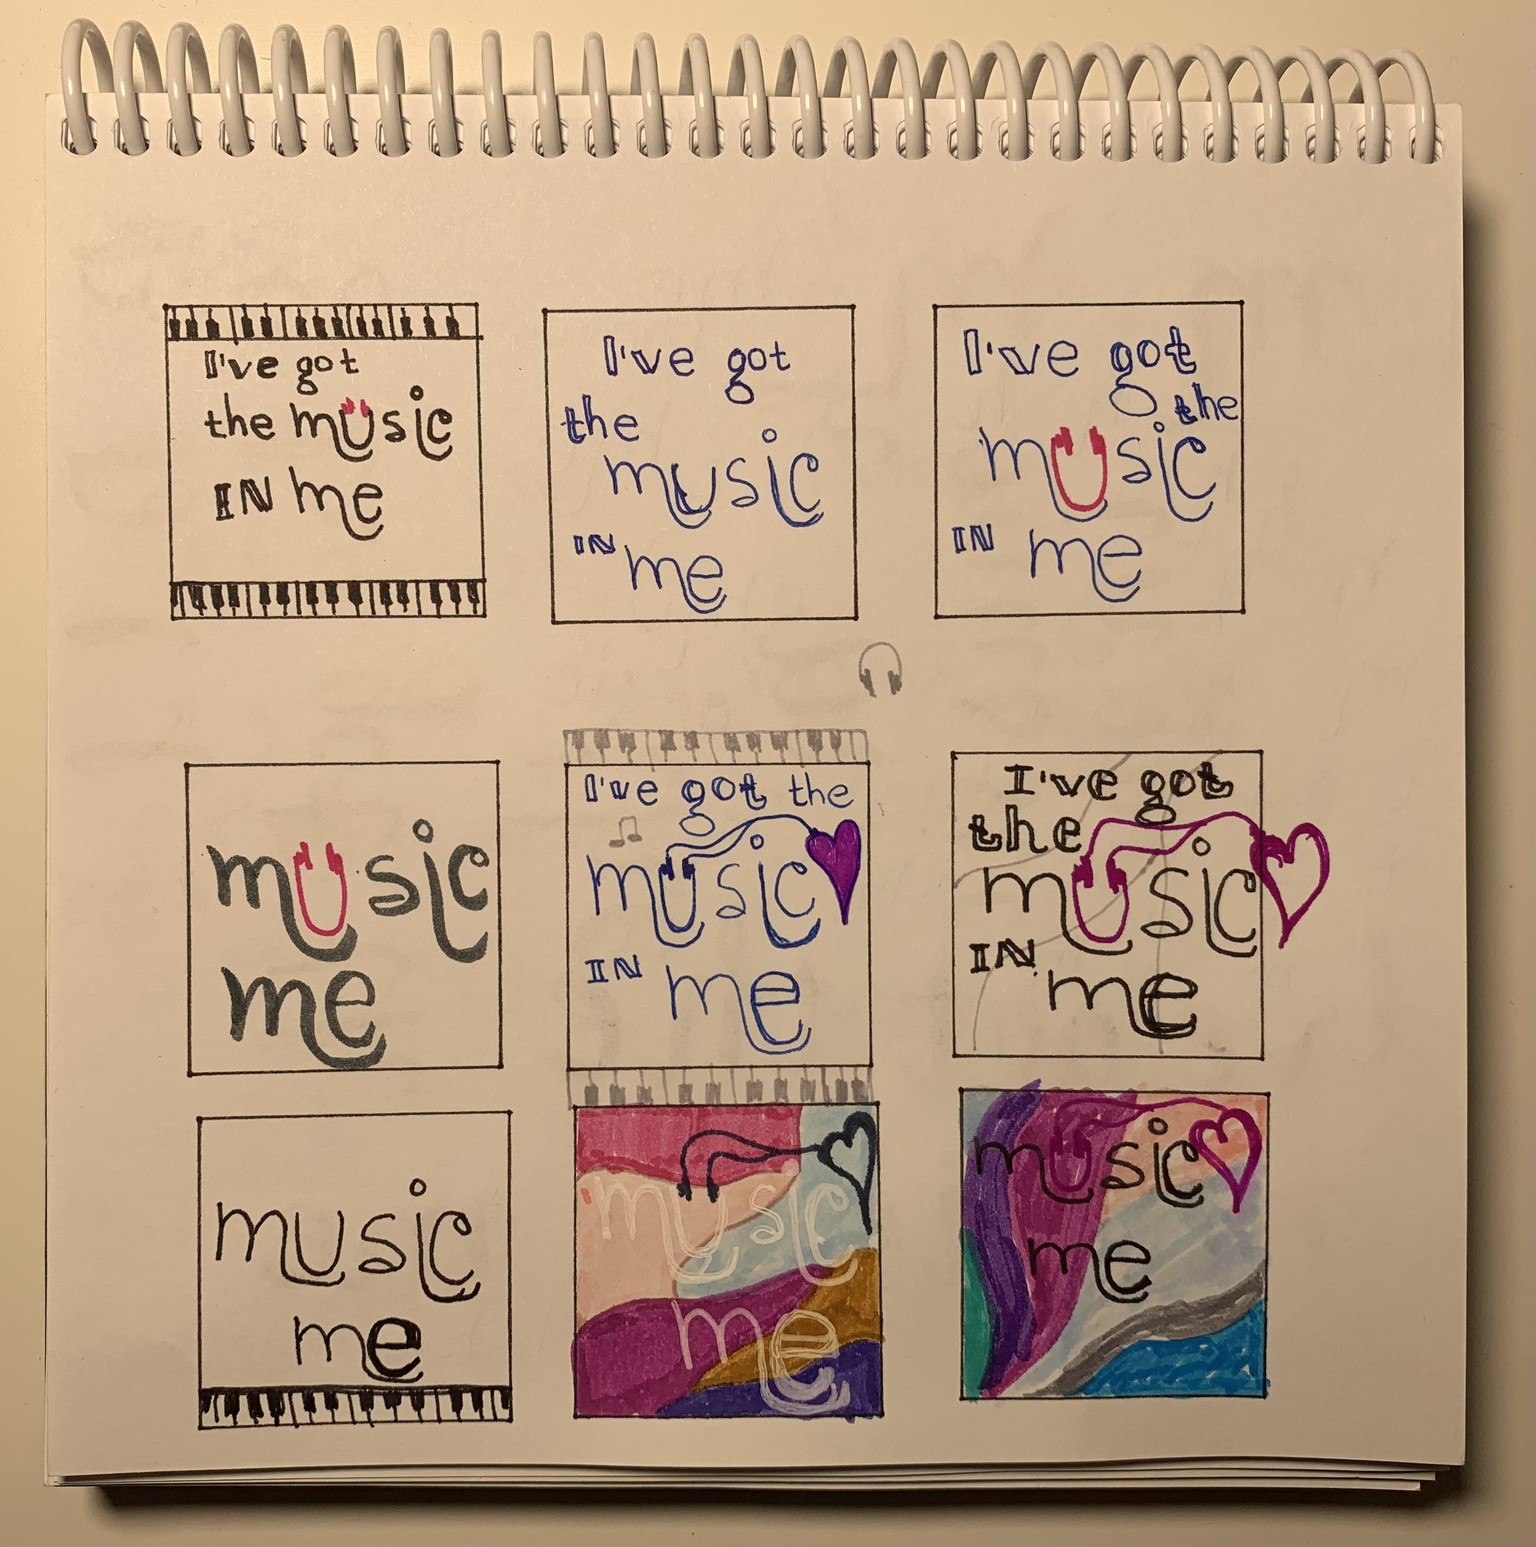 I've got
the music
IN me
I've got
the
music
IN me
I've got
the
music
IN me
music
me
I've got the
music
IN me
I've got
the
music
IN
me
music
me
music
me
music
me